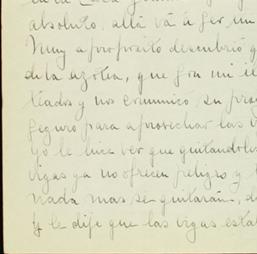 absoluto, allá vá á ser un
Muy a proposito descubrió q
de la azotea, que son mi
teados y nos comunicó su pro
seguro para aprovechar las v
yo le hice ver que quitandole
vigas ya no ofrecen peligro y
nada mas se quitarán, d
Y le dije que las vigas esta